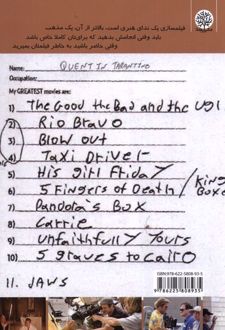 فیلمسازی یک ندای هنری است، بالاتر از آن، یک مذهب
باید وقتی انجامش بدهید که برای‌تان کاملا خاص باشد
وقتی حاضر باشید به خاطر فیلمتان بمیرید
Name: QUENTIN TARANTINO
Occupation:
My GREATEST movies are:
1) The Good the Bad and the ugl
2) Rio Bravo
3) Blow out
4) Taxi Driver
5) His girl Friday
6) 5 Fingers of Death / King Boxe
7) Pandora's Box
8) Carrie
9) unfaithfully Yours
10) 5 graves to Cairo
11. JAWS
ISBN:978-622-5808-93-5
9 786225 808935